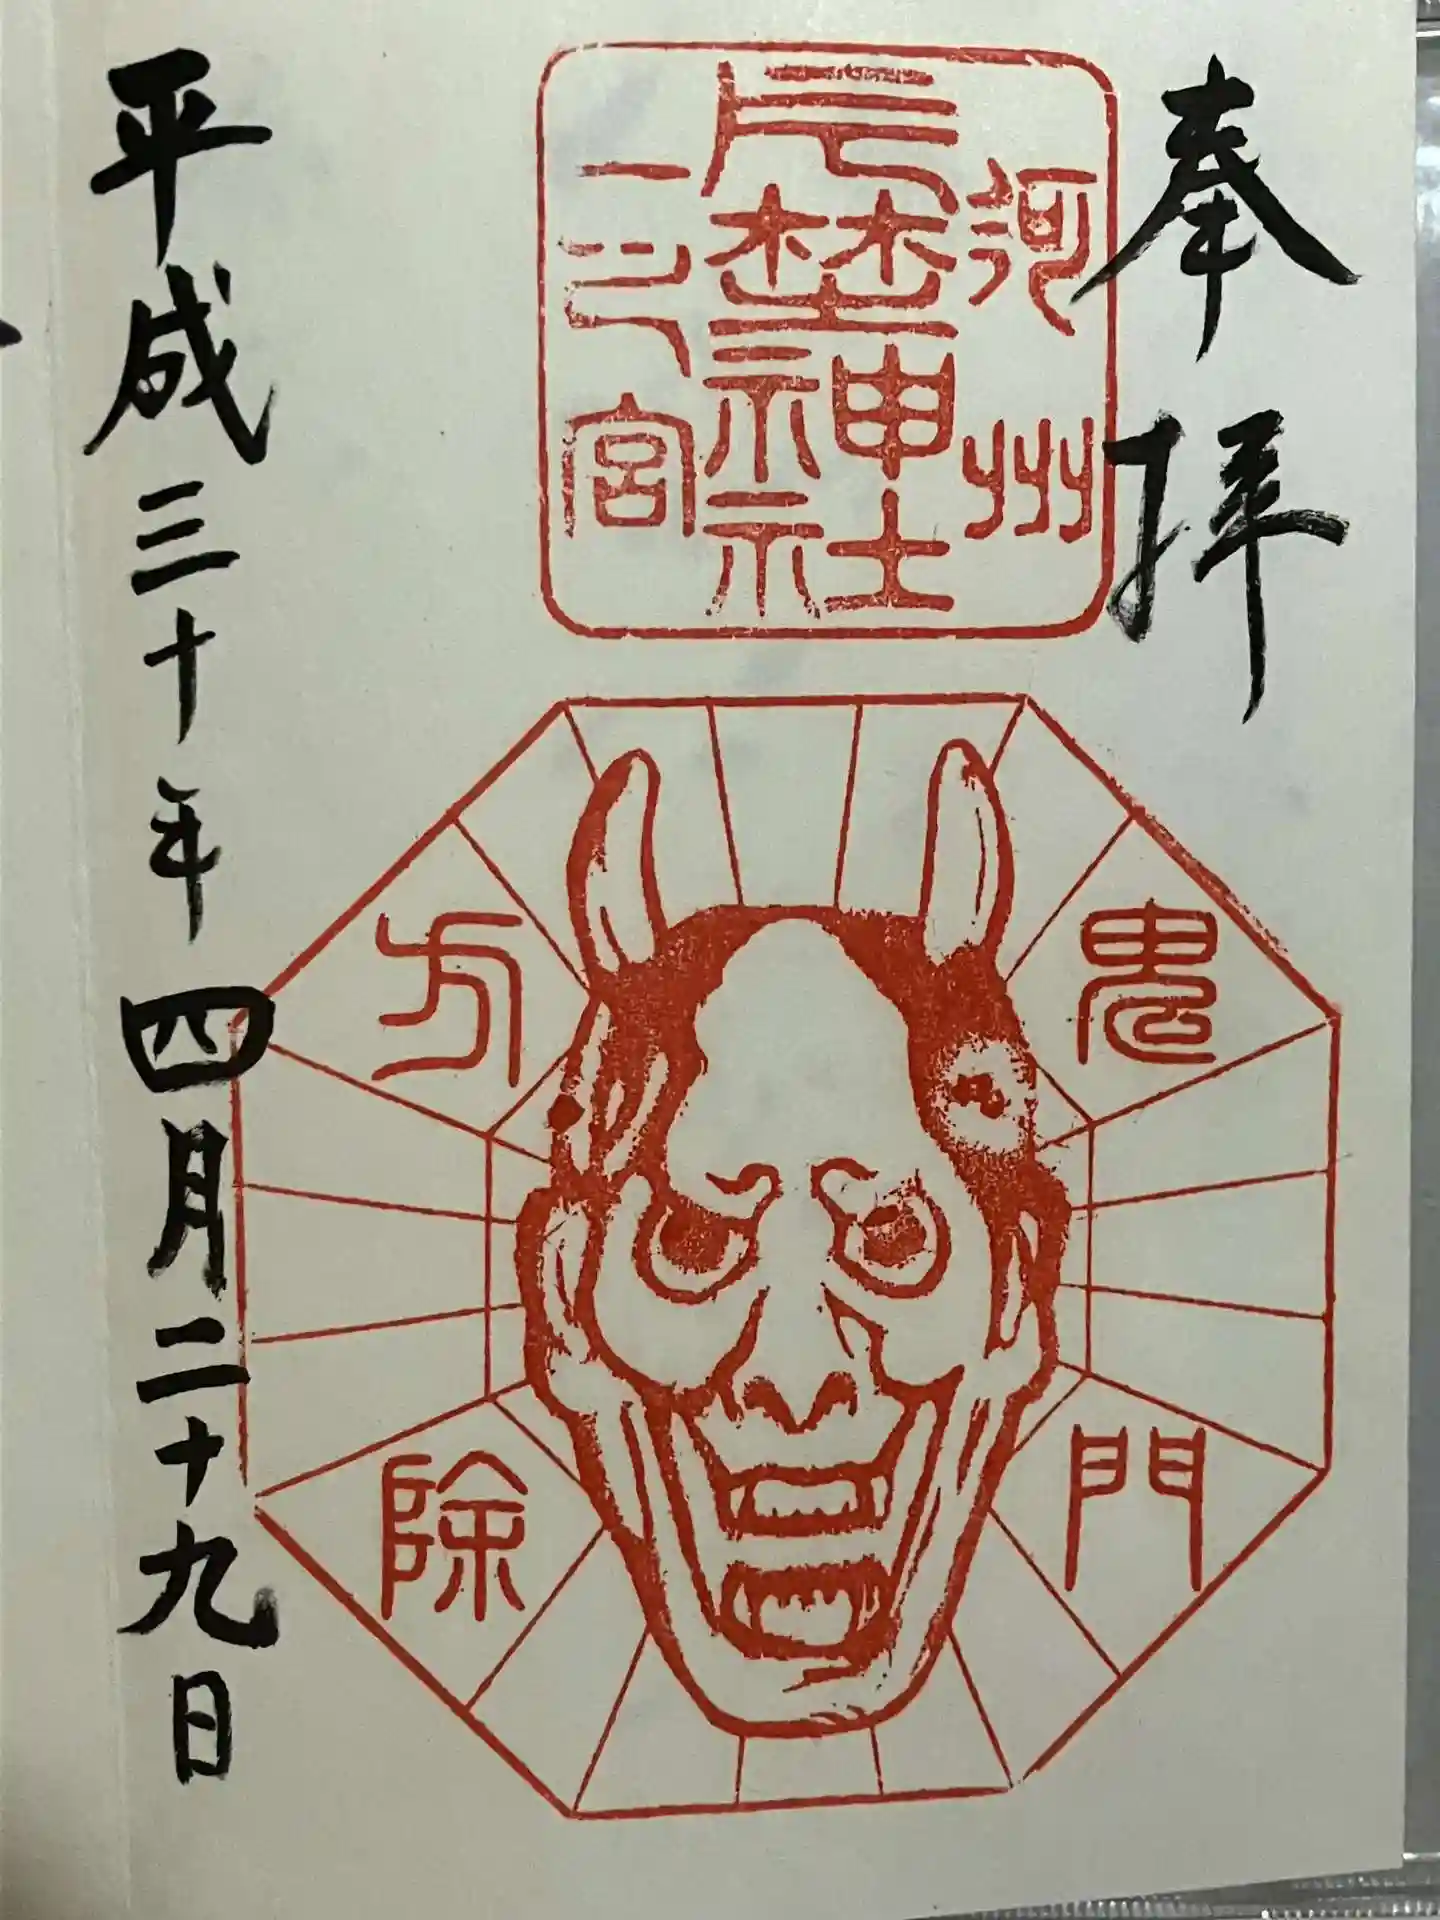 奉拝
河州
片埜神社
一乃宮
鬼門
方除
平成三十年四月二十九日